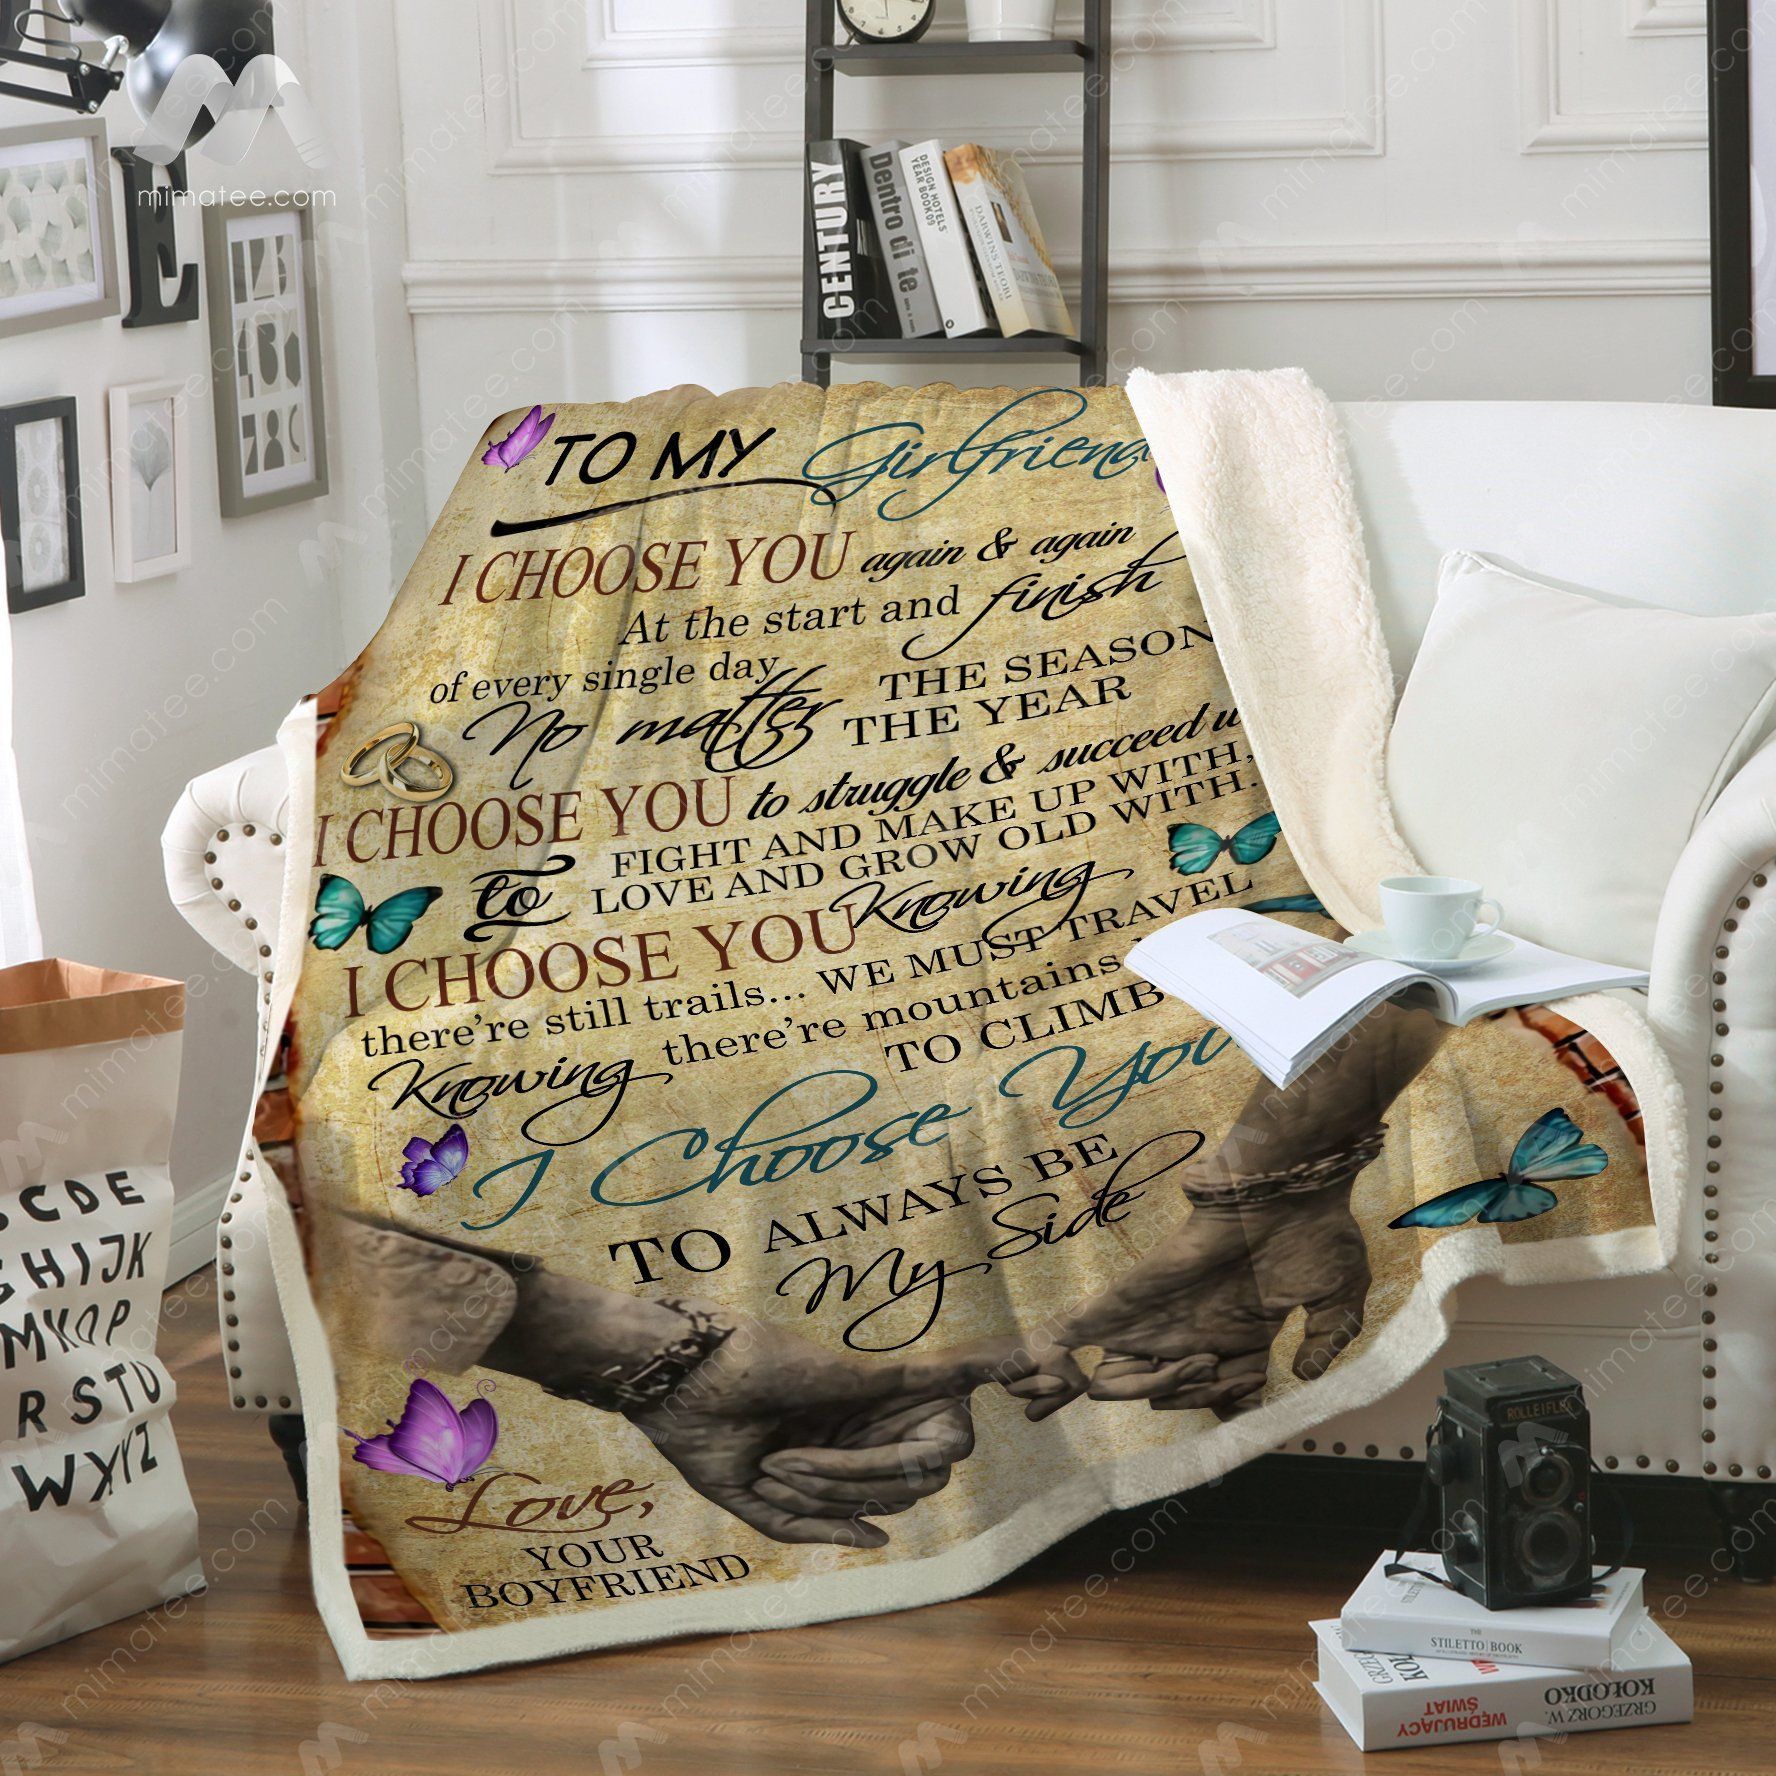 mimatee.com
E
CENTURY
Dentro di te
DESIGN HOTELS
YEAR BOOK 09
DARWINS TEORI
TO MY Girlfriend
I CHOOSE YOU again & again
At the start and finish
of every single day
No matter THE SEASON
THE YEAR
I CHOOSE YOU to struggle & succeed
FIGHT AND MAKE UP WITH,
to LOVE AND GROW OLD WITH.
I CHOOSE YOU Knowing
there're still trails... WE MUST TRAVEL
Knowing there're mountains
TO CLIMB
I Choose You
TO ALWAYS BE
My Side
Love,
YOUR
BOYFRIEND
CDE
GHIJK
MNOP
RSTU
WXYZ
ROLLEIFLEX
THE
STILETTO BOOK
GRZEGORZ W.
KOŁODKO
WĘDRUJĄCY
ŚWIAT